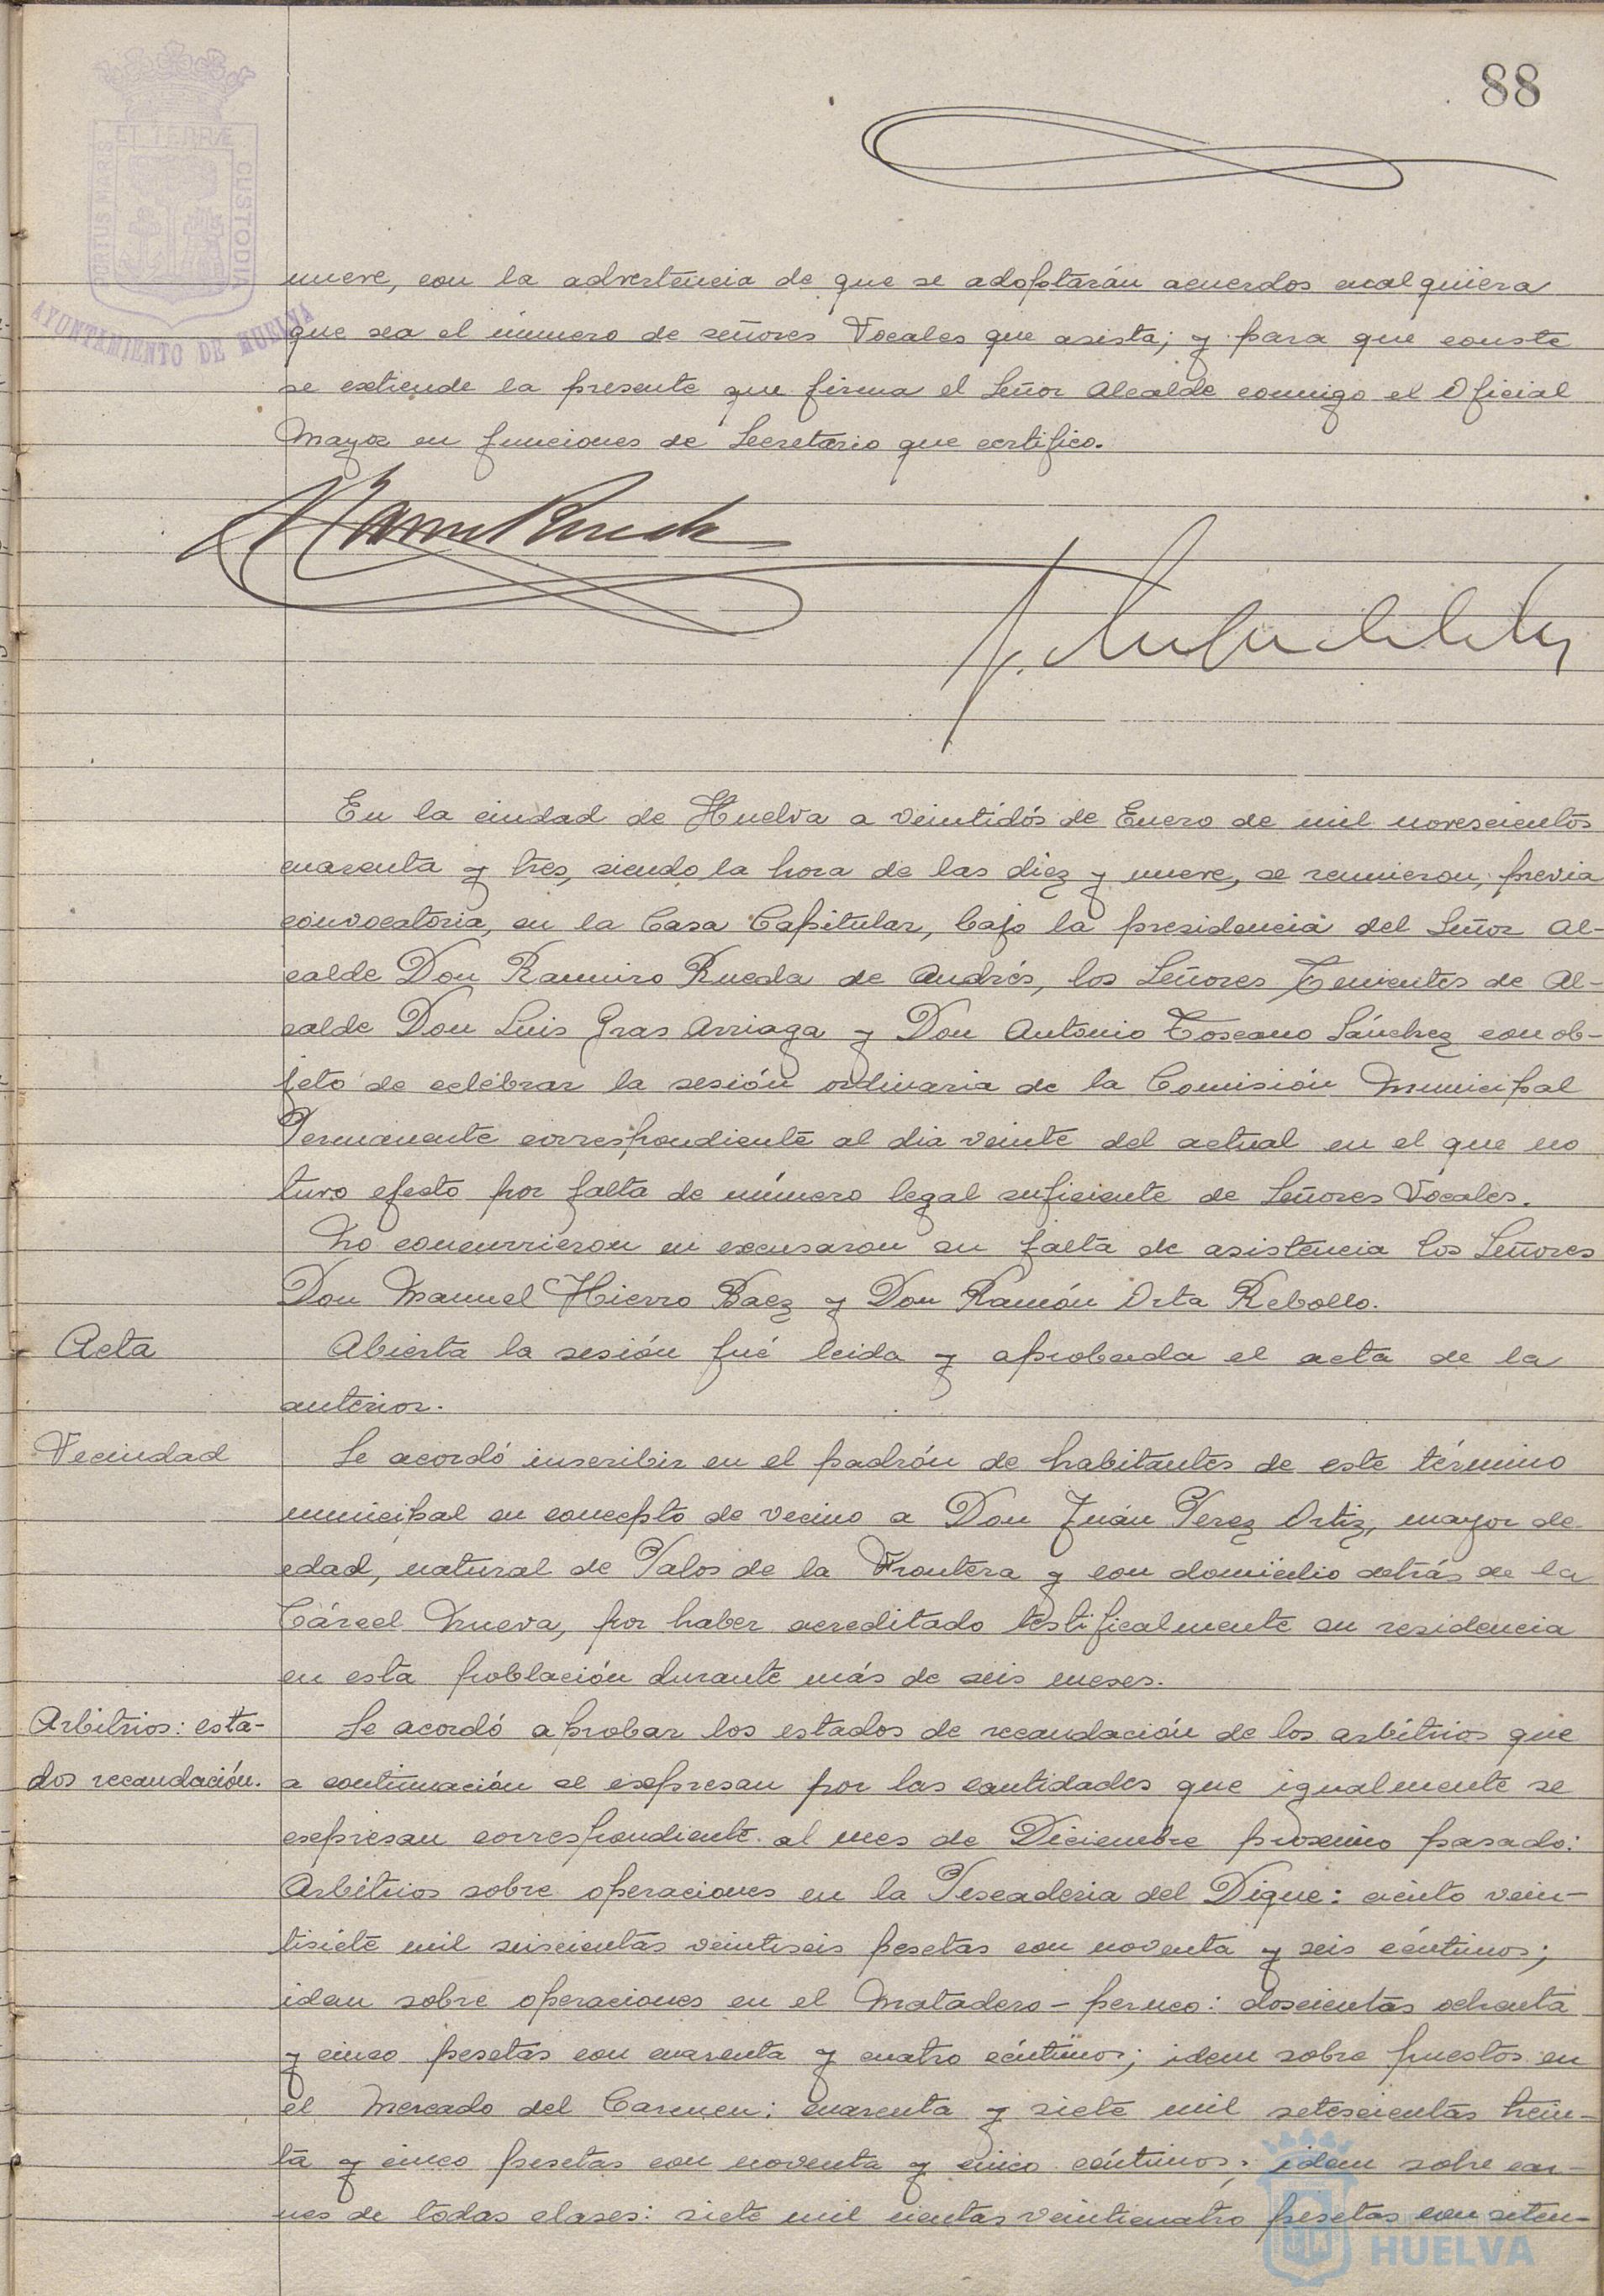 88
PORTUS MARIS
ET TERRÆ
CUSTODIA
AYUNTAMIENTO DE HUELVA
nueve, con la advertencia de que se adoptarán acuerdos cualquiera
que sea el número de señores Vocales que asista; y para que conste
se extiende la presente que firma el Señor Alcalde conmigo el Oficial
Mayor en funciones de Secretario que certifico.
Ramiro Rueda
En la ciudad de Huelva a veintidós de Enero de mil novescientos
cuarenta y tres, siendo la hora de las diez y nueve, se reunieron, previa
convocatoria, en la Casa Capitular, bajo la presidencia del Señor Al-
calde Don Ramiro Rueda de Andrés, los Señores Tenientes de Al-
calde Don Luis Gras Arriaga y Don Antonio Toscano Sánchez con ob-
jeto de celebrar la sesión ordinaria de la Comisión Municipal
Permanente correspondiente al dia veinte del actual en el que no
tuvo efecto por falta de número legal suficiente de Señores Vocales.
No concurrieron ni excusaron su falta de asistencia los Señores
Don Manuel Hierro Baez y Don Ramón Orta Rebollo.
Acta
Abierta la sesión fué leida y aprobada el acta de la
anterior.
Vecindad
Se acordó inscribir en el padrón de habitantes de este término
municipal en concepto de vecino a Don Juán Perez Ortiz, mayor de
edad, natural de Palos de la Frontera y con domicilio detrás de la
Cárcel Nueva, por haber acreditado testificalmente su residencia
en esta población durante más de seis meses.
Arbitrios: esta-
dos recaudación.
Se acordó aprobar los estados de recaudación de los arbitrios que
a continuación se expresan por las cantidades que igualmente se
expresan correspondiente al mes de Diciembre proximo pasado:
Arbitrios sobre operaciones en la Pescaderia del Dique: ciento vein-
tisiete mil seiscientas veintiseis pesetas con noventa y seis céntimos;
idem sobre operaciones en el Matadero-permeo: doscientas ochenta
y cinco pesetas con cuarenta y cuatro céntimos; idem sobre puestos en
el Mercado del Carmen: cuarenta y siete mil setescientas trein-
ta y cinco pesetas con noventa y cinco céntimos; idem sobre car-
nes de todas clases: siete mil cientas veinticuatro pesetas con seten-
HUELVA